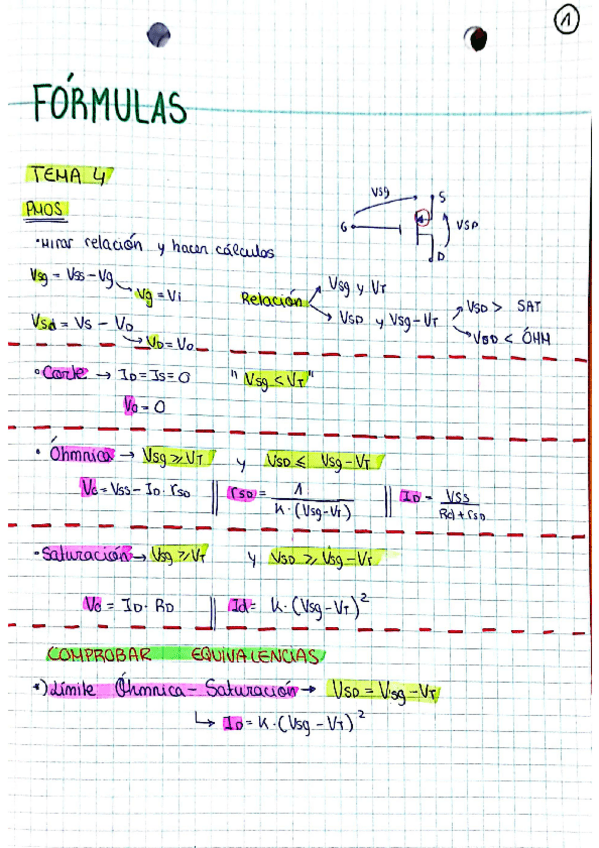 1
FÓRMULAS
TEMA 4
PMOS
VSg
S
G
VSD
D
·Mirar relación y hacer cálculos
Vsg = Vss - Vg
Vg = Vi
Relación
Vsg y VT
VSD y Vsg - VT
VSD > SAT
VSD < ÓHM
Vsd = Vs - VD
VD = Vo
· Corte → ID = IS = 0 "Vsg < VT"
Vo = 0
· Óhmnica → Vsg ⩾ VT y VSD ⩽ Vsg - VT
Vo = Vss - ID · rSD || rSD = 1 / K · (Vsg - VT) || ID = VSS / RD + rSD
· Saturación → Vsg ⩾ VT y VSD ⩾ Vsg - VT
Vo = ID · RD || Id = K · (Vsg - VT)²
COMPROBAR EQUIVALENCIAS
*) Límite Óhmnica - Saturación → VSD = Vsg - VT
↳ ID = K · (Vsg - VT)²